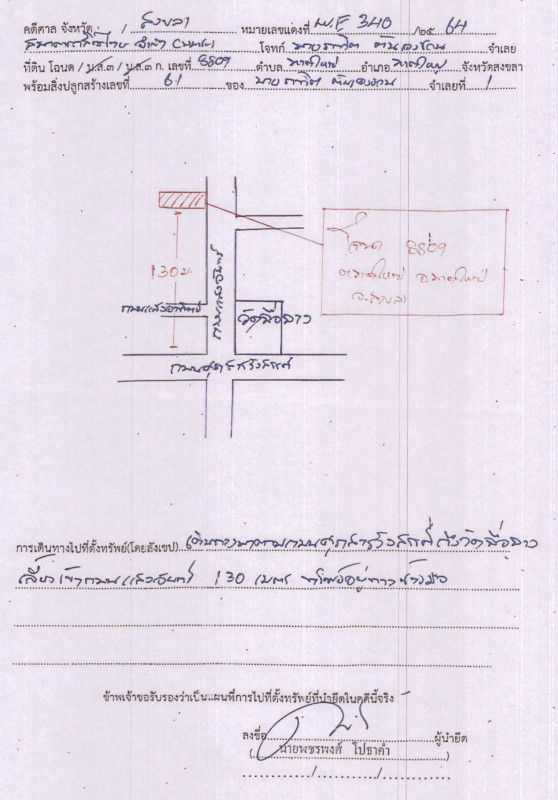 คดีศาล จังหวัด / สงขลา หมายเลขแดงที่ ผบ.E 340 /๒๕ 64
ธนาคารกสิกรไทย จำกัด (มหาชน) โจทก์ นาย จำเลย
ที่ดิน โฉนด / น.ส.๓ / น.ส.๓ ก. เลขที่ 8809 ตำบล หาดใหญ่ อำเภอ หาดใหญ่ จังหวัดสงขลา
พร้อมสิ่งปลูกสร้างเลขที่ 61 ของ นาย จำเลยที่ 1
โฉนด 8809
ต.หาดใหญ่ อ.หาดใหญ่
จ.สงขลา
130 ม.
ถนนแสงจันทร์
ถนนแสงอาทิตย์
วัดลือลาง
ถนนศุภสารรังสรรค์
การเดินทางไปที่ตั้งทรัพย์(โดยสังเขป) เดินทางมาตามถนนศุภสารรังสรรค์ ถึงวัดลือลาง
เลี้ยวเข้าถนนแสงจันทร์ 130 เมตร ทรัพย์อยู่ทางซ้ายมือ
ข้าพเจ้าขอรับรองว่าเป็นแผนที่การไปที่ตั้งทรัพย์ที่นำยึดในคดีนี้จริง
ลงชื่อ ผู้นำยึด
( นายพชรพงศ์ โปธาคำ )
/ /